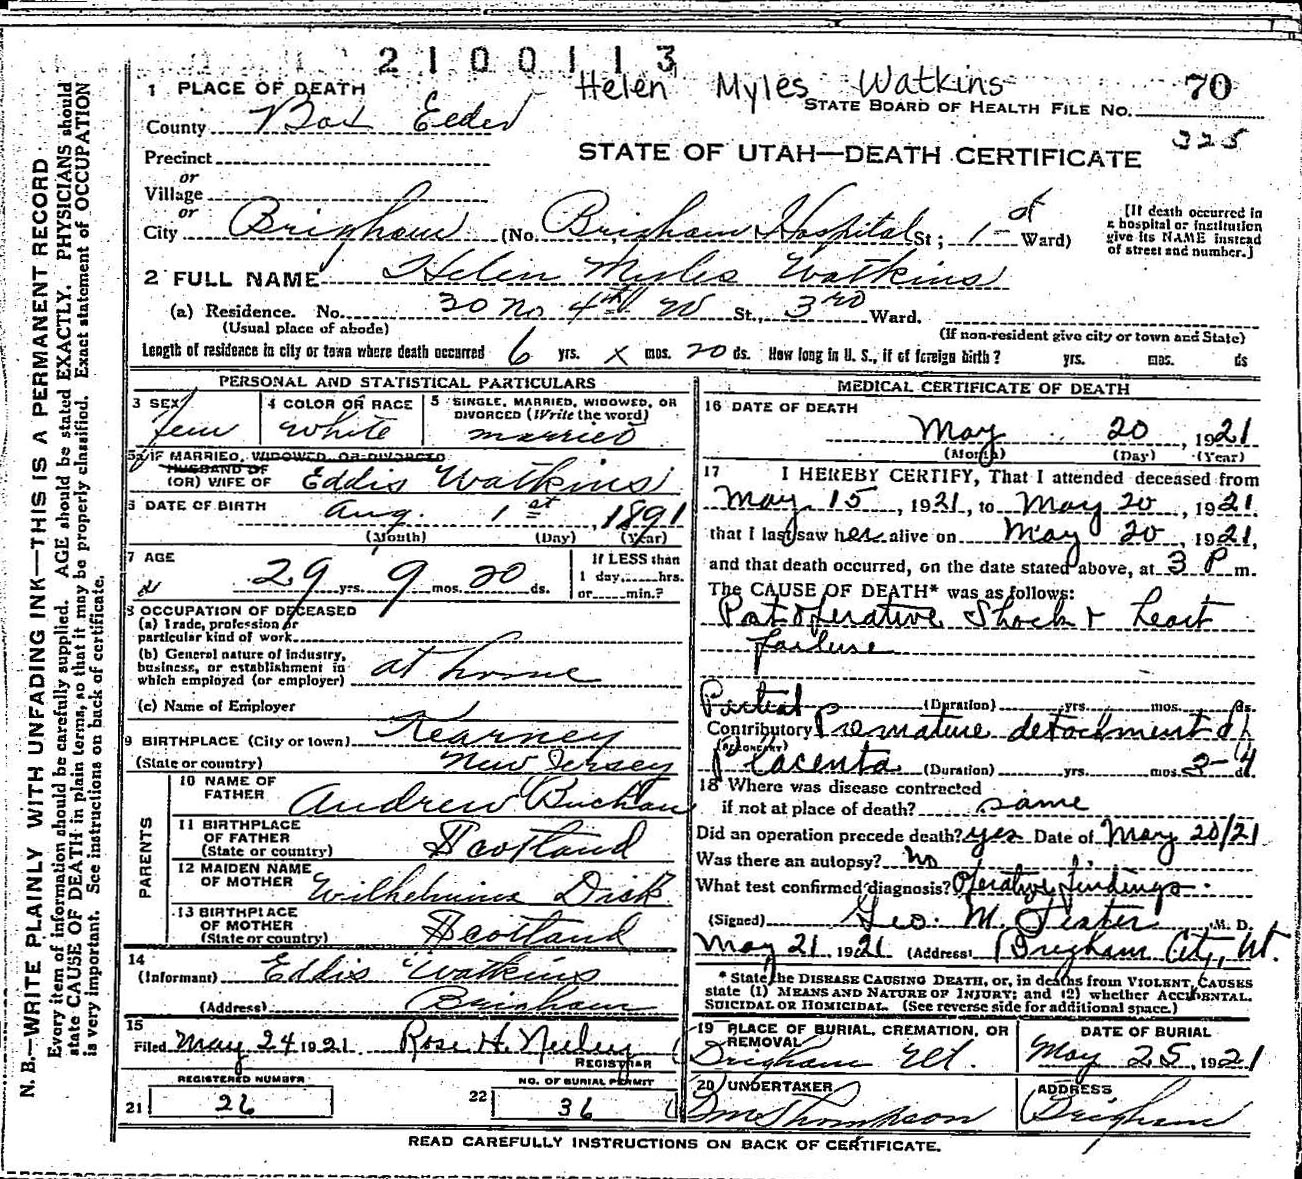 2100113
Helen Myles Watkins
70
1 PLACE OF DEATH
STATE BOARD OF HEALTH FILE No.
County Box Elder
325
STATE OF UTAH—DEATH CERTIFICATE
Precinct
or
Village
or
City Brigham (No. Brigham Hospital St; 1st Ward)
[If death occurred in a hospital or institution give its NAME instead of street and number.]
2 FULL NAME Helen Myles Watkins
(a) Residence. No. 30 No 4th W St., 3rd Ward.
(Usual place of abode) (If non-resident give city or town and State)
Length of residence in city or town where death occurred 6 yrs. x mos. 20 ds. How long in U. S., if of foreign birth? yrs. mos. ds
PERSONAL AND STATISTICAL PARTICULARS
3 SEX Fem
4 COLOR OR RACE White
5 SINGLE, MARRIED, WIDOWED, OR DIVORCED (Write the word) married
5a IF MARRIED, WIDOWED, OR DIVORCED
HUSBAND OF
(OR) WIFE OF Eddis Watkins
6 DATE OF BIRTH Aug. 1st, 1891
(Month) (Day) (Year)
7 AGE 29 yrs. 9 mos. 20 ds.
If LESS than 1 day,......hrs. or......min.?
8 OCCUPATION OF DECEASED
(a) Trade, profession or particular kind of work
(b) General nature of industry, business, or establishment in which employed (or employer) at home
(c) Name of Employer
9 BIRTHPLACE (City or town) Kearney
(State or country) New Jersey
PARENTS
10 NAME OF FATHER Andrew Buchan
11 BIRTHPLACE OF FATHER (State or country) Scotland
12 MAIDEN NAME OF MOTHER Wilhelmina Disk
13 BIRTHPLACE OF MOTHER (State or country) Scotland
14 (Informant) Eddis Watkins
(Address) Brigham
15 Filed May 24 1921 Rose H. Neeley
REGISTRAR
REGISTERED NUMBER
21 26
NO. OF BURIAL PERMIT
22 36
MEDICAL CERTIFICATE OF DEATH
16 DATE OF DEATH
May 20, 1921
(Month) (Day) (Year)
17 I HEREBY CERTIFY, That I attended deceased from
May 15, 1921, to May 20, 1921
that I last saw her alive on May 20, 1921,
and that death occurred, on the date stated above, at 3 P m.
The CAUSE OF DEATH* was as follows:
Post operative Shock & heart
failure
Partial (Duration) yrs. mos. ds.
Contributory Premature detachment of
(SECONDARY)
Placenta (Duration) yrs. mos. 3-4 ds
18 Where was disease contracted
if not at place of death? same
Did an operation precede death? yes Date of May 20/21
Was there an autopsy? No
What test confirmed diagnosis? Operative findings.
(Signed) Geo. M. Fister, M. D.
May 21 1921 (Address) Brigham City, Ut.
* State the DISEASE CAUSING DEATH, or, in deaths from VIOLENT CAUSES
state (1) MEANS AND NATURE OF INJURY; and (2) whether ACCIDENTAL.
SUICIDAL OR HOMICIDAL. (See reverse side for additional space.)
19 PLACE OF BURIAL, CREMATION, OR REMOVAL
Brigham Ut.
DATE OF BURIAL
May 25, 1921
20 UNDERTAKER
Thompson
ADDRESS
Brigham
READ CAREFULLY INSTRUCTIONS ON BACK OF CERTIFICATE.
N. B.—WRITE PLAINLY WITH UNFADING INK—THIS IS A PERMANENT RECORD
Every item of information should be carefully supplied. AGE should be stated EXACTLY. PHYSICIANS should
state CAUSE OF DEATH in plain terms, so that it may be properly classified. Exact statement of OCCUPATION
is very important. See instructions on back of certificate.